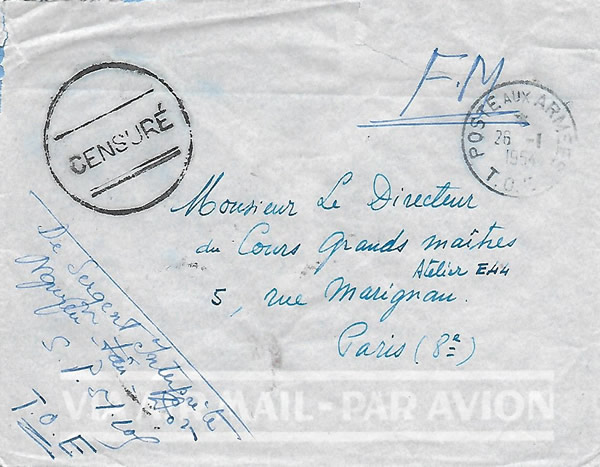 F.M
CENSURÉ
POSTE AUX ARMÉES
26 -1
1954
T.O.E.
Monsieur Le Directeur
du Cours Grands maîtres
Atelier E44
5, rue Marignan.
Paris (8e)
De Sergent interprète
Nguyen
S.P.
T.O.E
VIA AIR MAIL PAR AVION